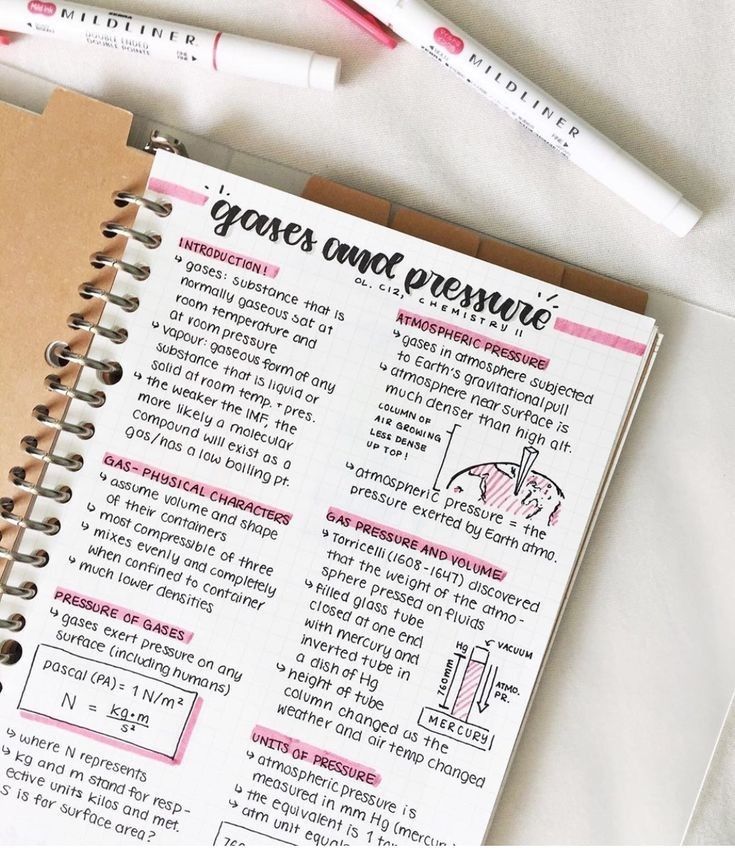 Mild ink
MILDLINER
DOUBLE ENDED
DOUBLE POINTS
FINE
MILDLINER
gases and pressure
OL. C12, CHEMISTRY 11
INTRODUCTION!
↳ gases: substance that is
normally gaseous sat at
room temperature and
at room pressure
↳ vapour: gaseous form of any
substance that is liquid or
solid at room temp. + pres.
↳ the weaker the IMF, the
more likely a molecular
compound will exist as a
gas/has a low boiling pt.
GAS - PHYSICAL CHARACTERS
↳ assume volume and shape
of their containers
↳ most compressible of three
↳ mixes evenly and completely
when confined to container
↳ much lower densities
PRESSURE OF GASES
↳ gases exert pressure on any
surface (including humans)
pascal (PA) = 1 N/m²
N = kg·m
s²
↳ where N represents
↳ kg and m stand for resp-
ective units kilos and met.
s is for surface area?
ATMOSPHERIC PRESSURE
↳ gases in atmosphere subjected
to Earth's gravitational pull
↳ atmosphere near surface is
much denser than high alt.
COLUMN OF
AIR GROWING
LESS DENSE
UP TOP!
↳ atmospheric pressure = the
pressure exerted by Earth atmo.
GAS PRESSURE AND VOLUME
↳ Torricelli (1608-1647) discovered
that the weight of the atmo-
sphere pressed on fluids
↳ filled glass tube
closed at one end
with mercury and
inverted tube in
a dish of Hg
↳ height of tube
column changed as the
weather and air temp changed
Hg
VACUUM
760mm
ATMO.
PR.
MERCURY
UNITS OF PRESSURE
↳ atmospheric pressure is
measured in mm Hg (mercury
↳ the equivalent is 1
↳ atm unit equals
760